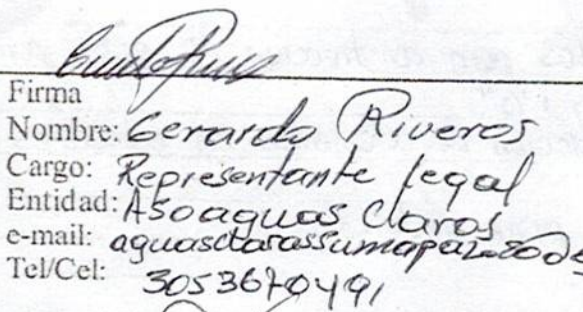 Firma
Nombre: Gerardo Riveros
Cargo: Representante legal
Entidad: Asoaguas Claras
e-mail:
Tel/Cel: 3053670491